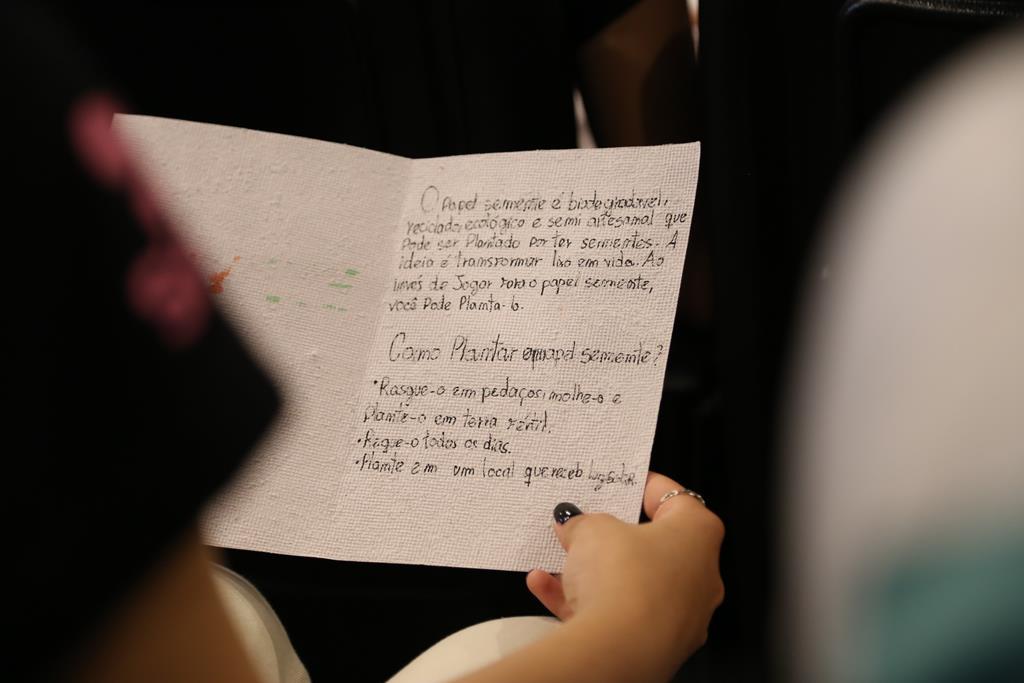 O Papel semente é biodegradável,
reciclado, ecológico e semi artesanal que
Pode ser Plantado por ter sementes. A
ideia é transformar lixo em vida. Ao
invés de Jogar fora o papel semente,
você Pode Planta-lo.
Como Plantar o papel semente?
• Rasgue-o em pedaços, molhe-o e
plante-o em terra fértil.
• Regue-o todos os dias.
• Plante em um local que receb luz solar.